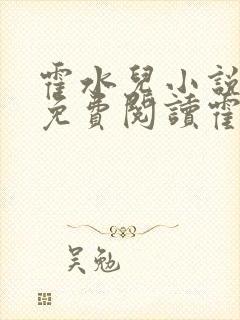 霍水兒小說
免費閱讀霍
吴勉